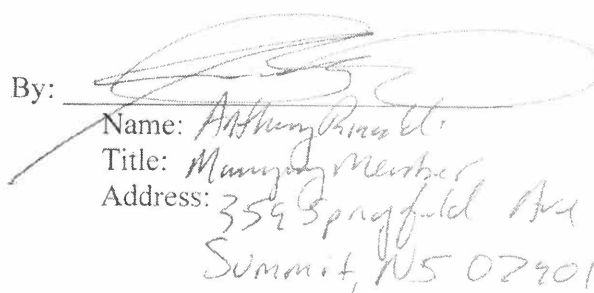 By:
Name: Anthony Rinaldi
Title: Managing Member
Address: 359 Springfield Ave
Summit, NJ 07901